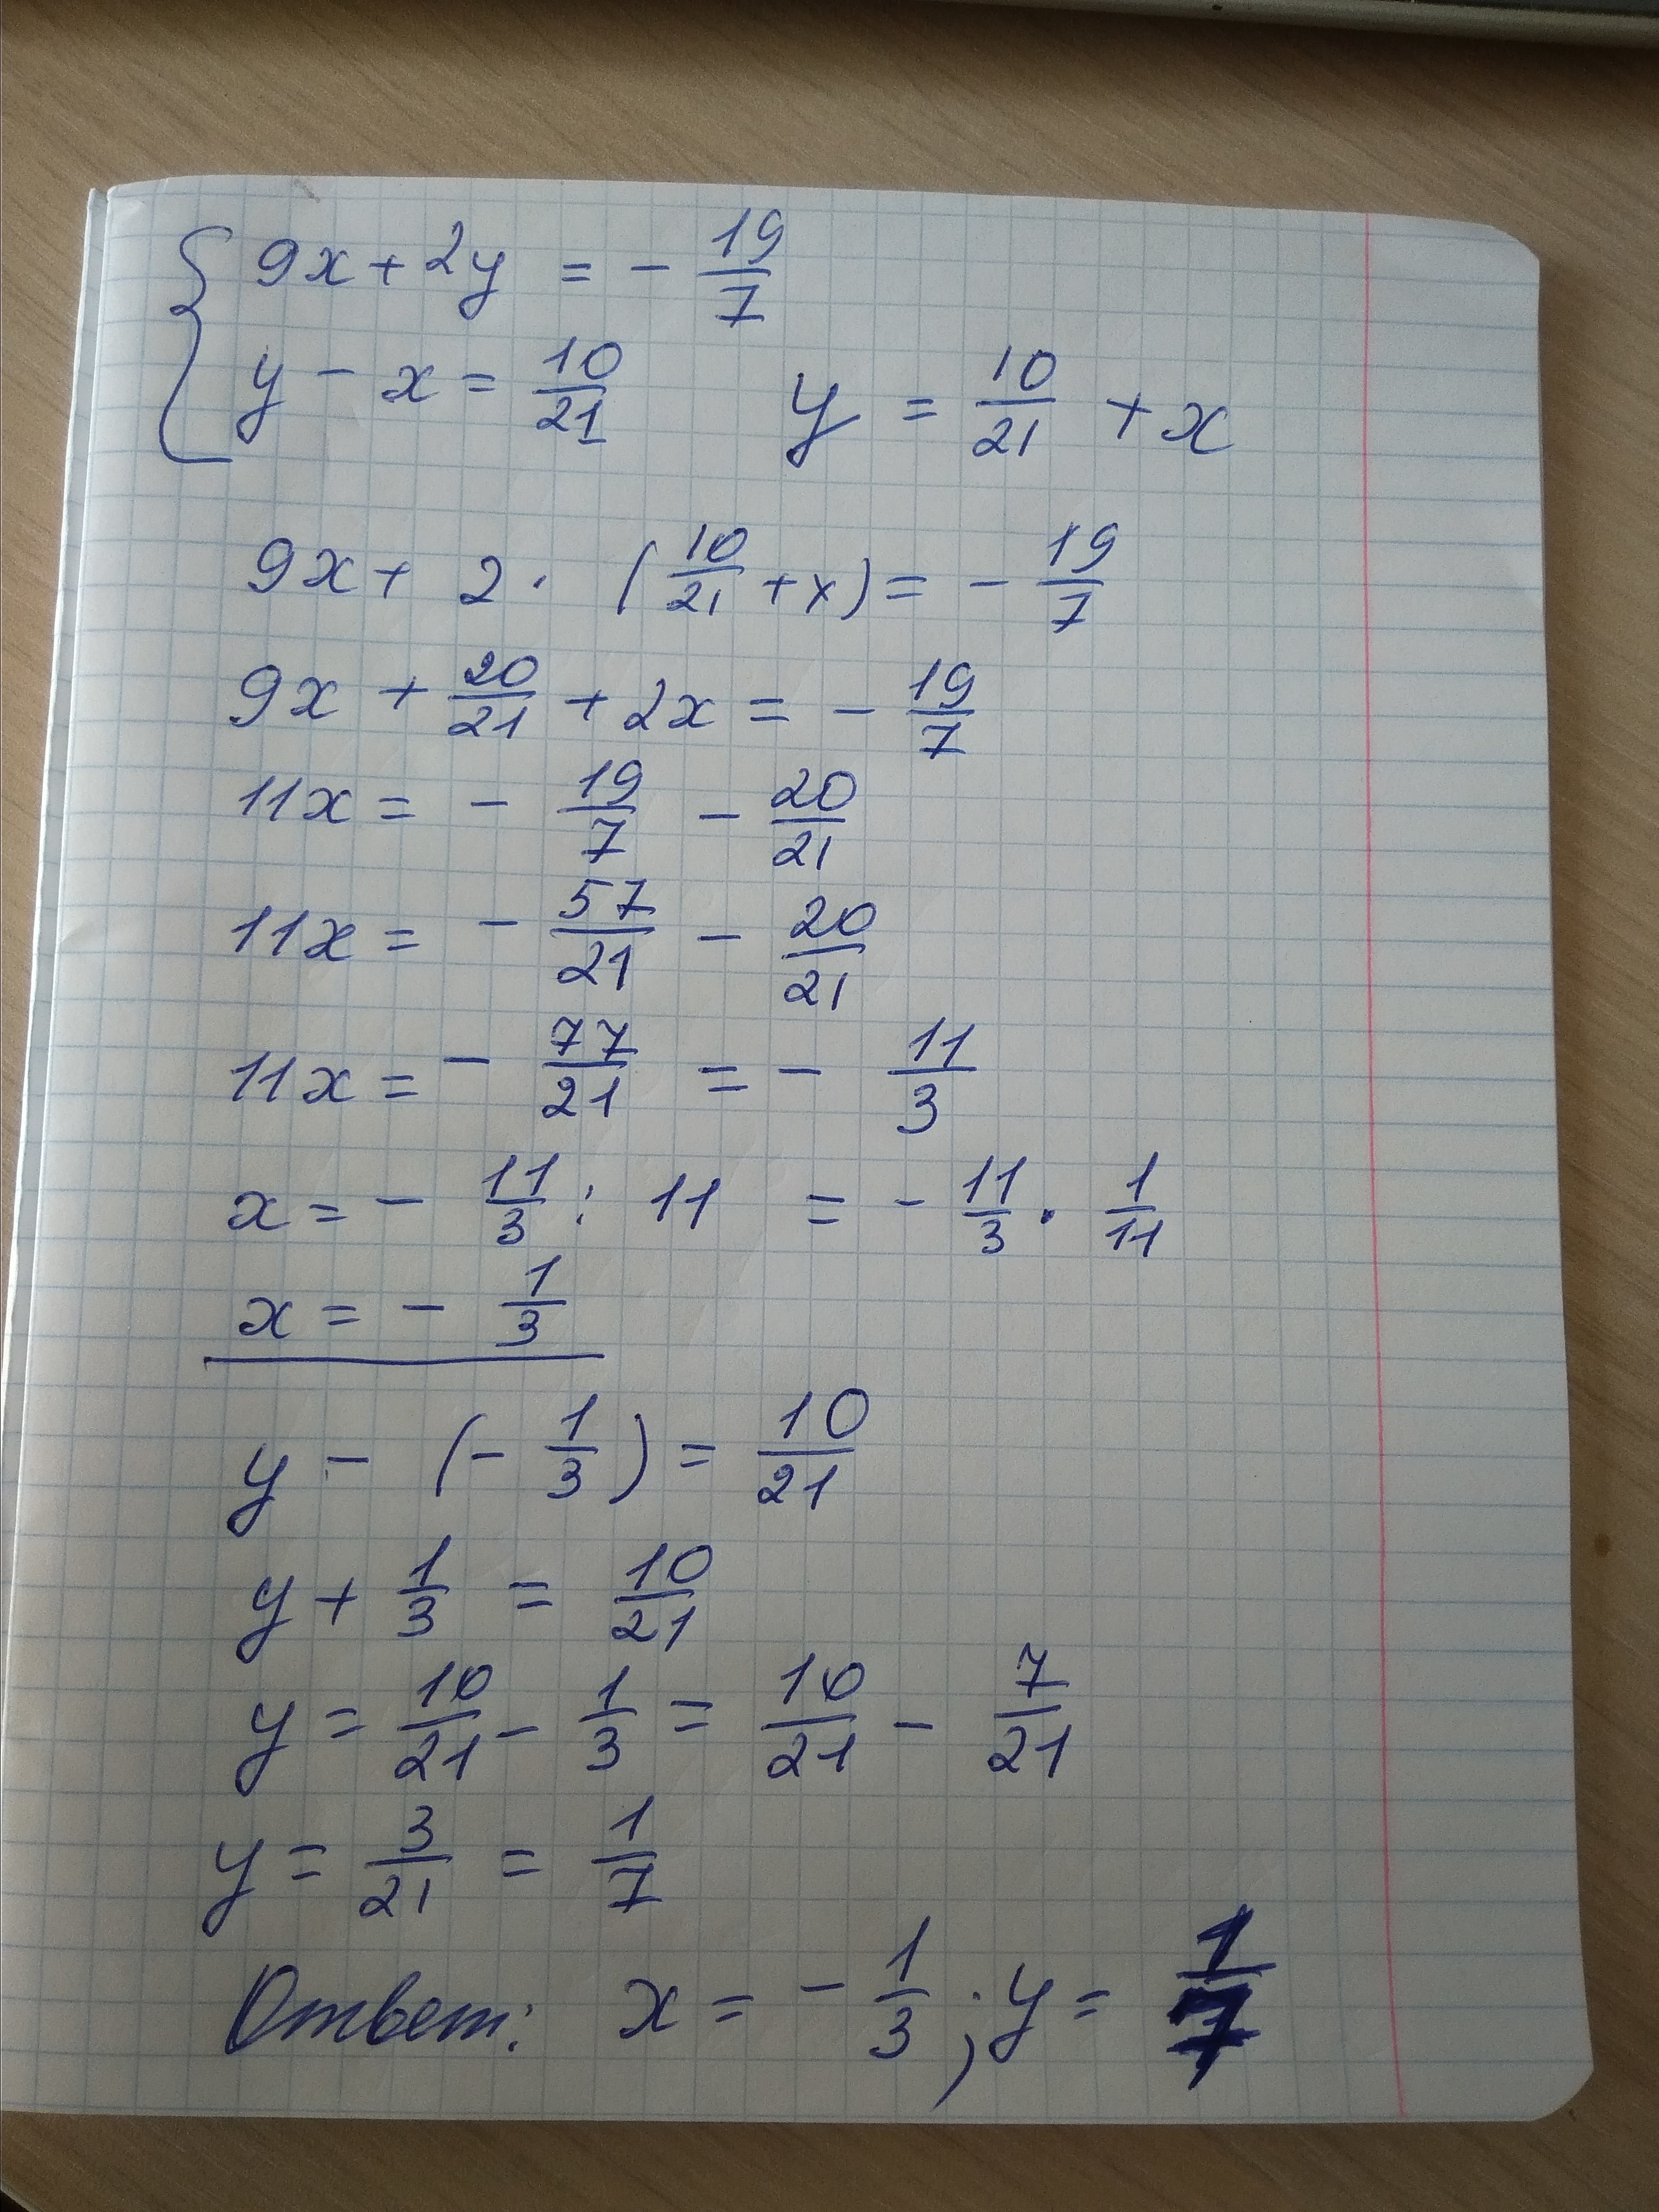 { 9x + 2y = - 19/7
y - x = 10/21    y = 10/21 + x
9x + 2 · (10/21 + x) = - 19/7
9x + 20/21 + 2x = - 19/7
11x = - 19/7 - 20/21
11x = - 57/21 - 20/21
11x = - 77/21 = - 11/3
x = - 11/3 : 11 = - 11/3 · 1/11
x = - 1/3
y - (- 1/3) = 10/21
y + 1/3 = 10/21
y = 10/21 - 1/3 = 10/21 - 7/21
y = 3/21 = 1/7
Ответ: x = - 1/3 ; y = 1/7